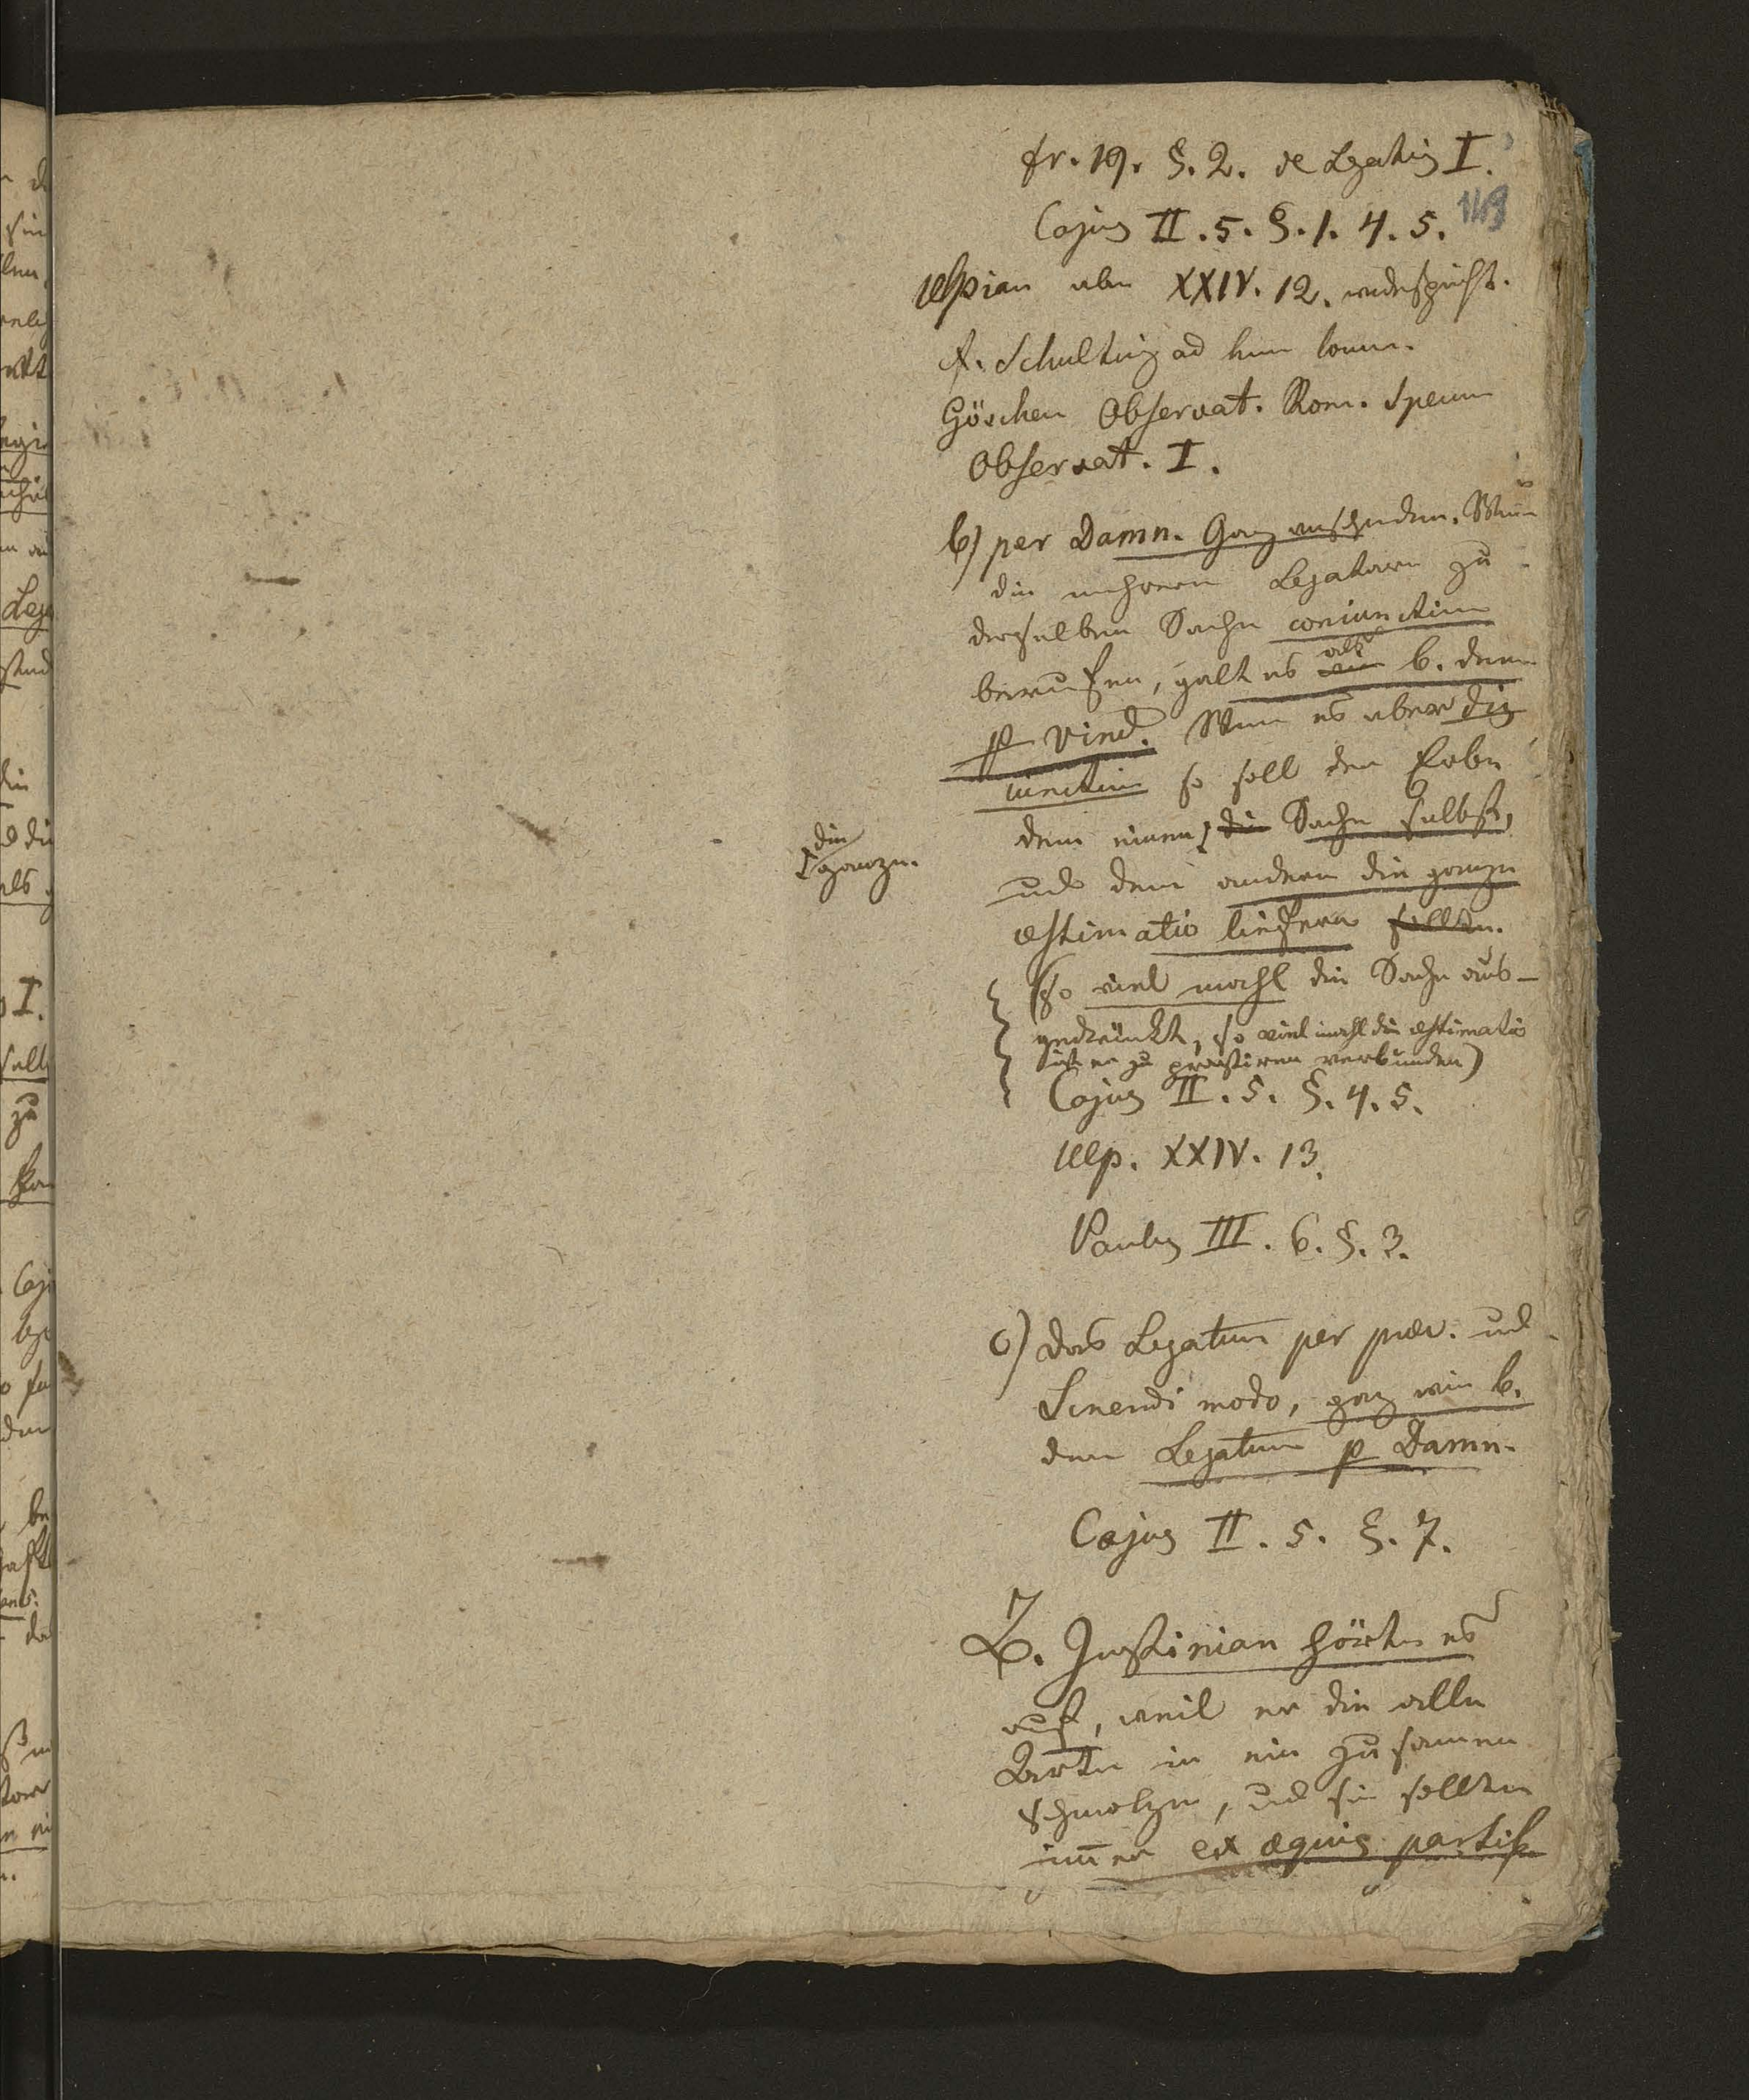 fr. 19. §. 2. de Legatis I.
149
Cajus II. 5. §. 1. 4. 5.
Ulpian aber XXIV. 12. widerspricht.
cf. Schulting ad hunc locum.
Göschen Observat. Rom. Specim
Observat. I.
b) per Damn. Ganz verschieden. Wenn
die mehrern Legatare zu
derselben Sache coniunctim
berufen, galt es als b. dem
p Vind. Wenn es aber dis
iunctim so soll der Erbe
dem einen die Sache selbst,
die
ganze.
und dem andern die ganze
æstimatio liefern sollen.
(so viel mahl die Sache aus-
gedrückt, so viel mahl die æstimatio
ist er zu præstiren verbunden)
Cajus II. 5. §. 4. 5.
Ulp. XXIV. 13.
Paulus III. 6. §. 3.
c) das Legatum per præc. und
Sinendi modo, ganz wie b.
dem Legatum p Damn.
Cajus II. 5. §. 7.
Z. Justinian hörte es
auf, weil er die alle
Arten in ein zusamen
schmolzen, und sie sollten
im̄er ex æquis partib